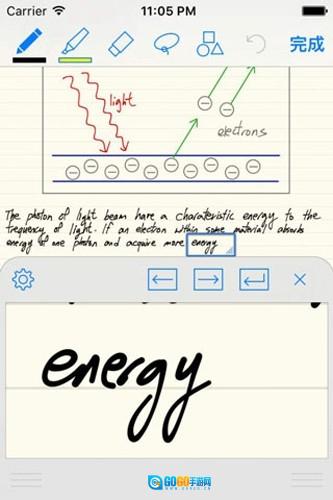 Carrier 11:05 PM
完成
light
electrons
The photon of light beam have a charateristic energy to the
frequency of light. If an electron within some material absorbs
energy of one photon and acquire more energy
energy
GOGO手游网